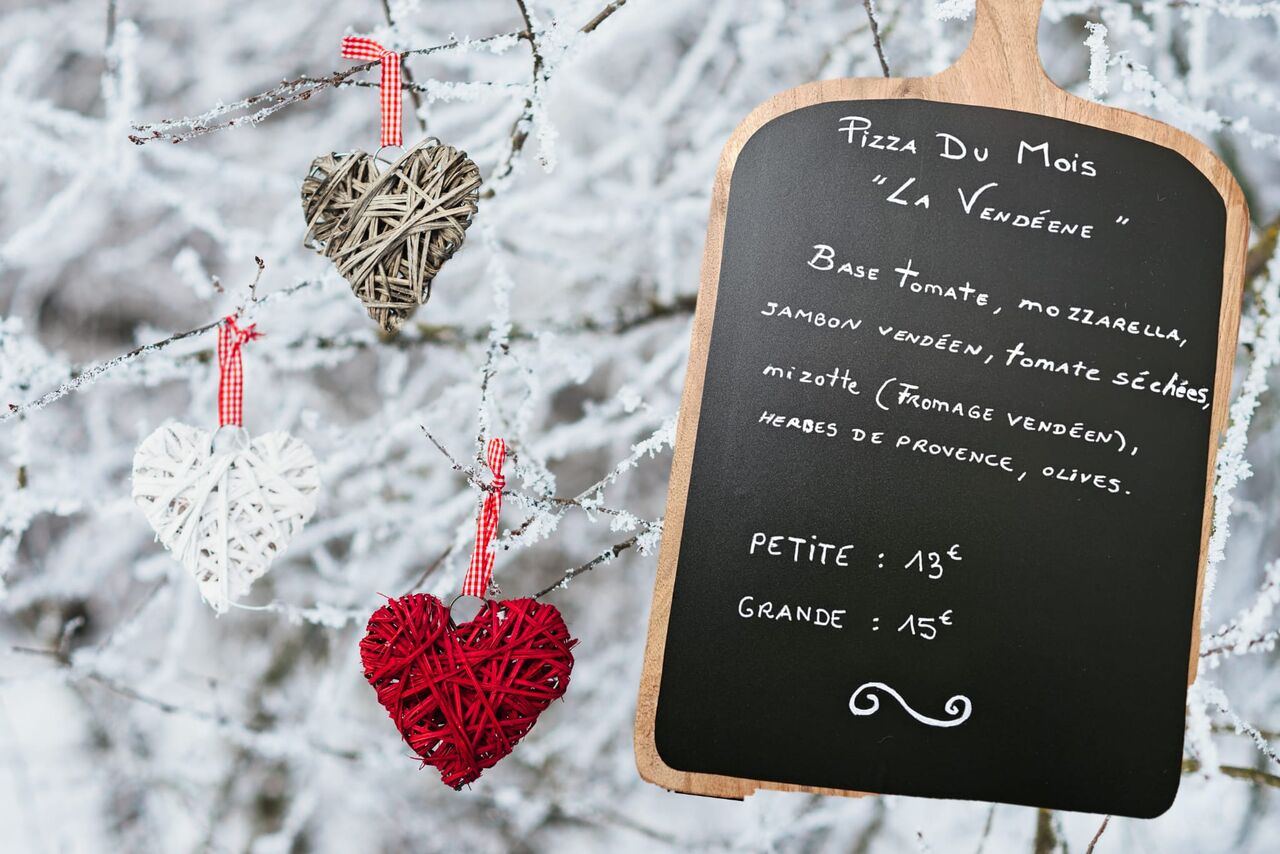 Pizza Du Mois
"La Vendéene"
Base tomate, mozzarella,
jambon vendéen, tomate séchées,
mizotte (Fromage vendéen),
herbes de provence, olives.
PETiTE : 13€
GRANDE : 15€